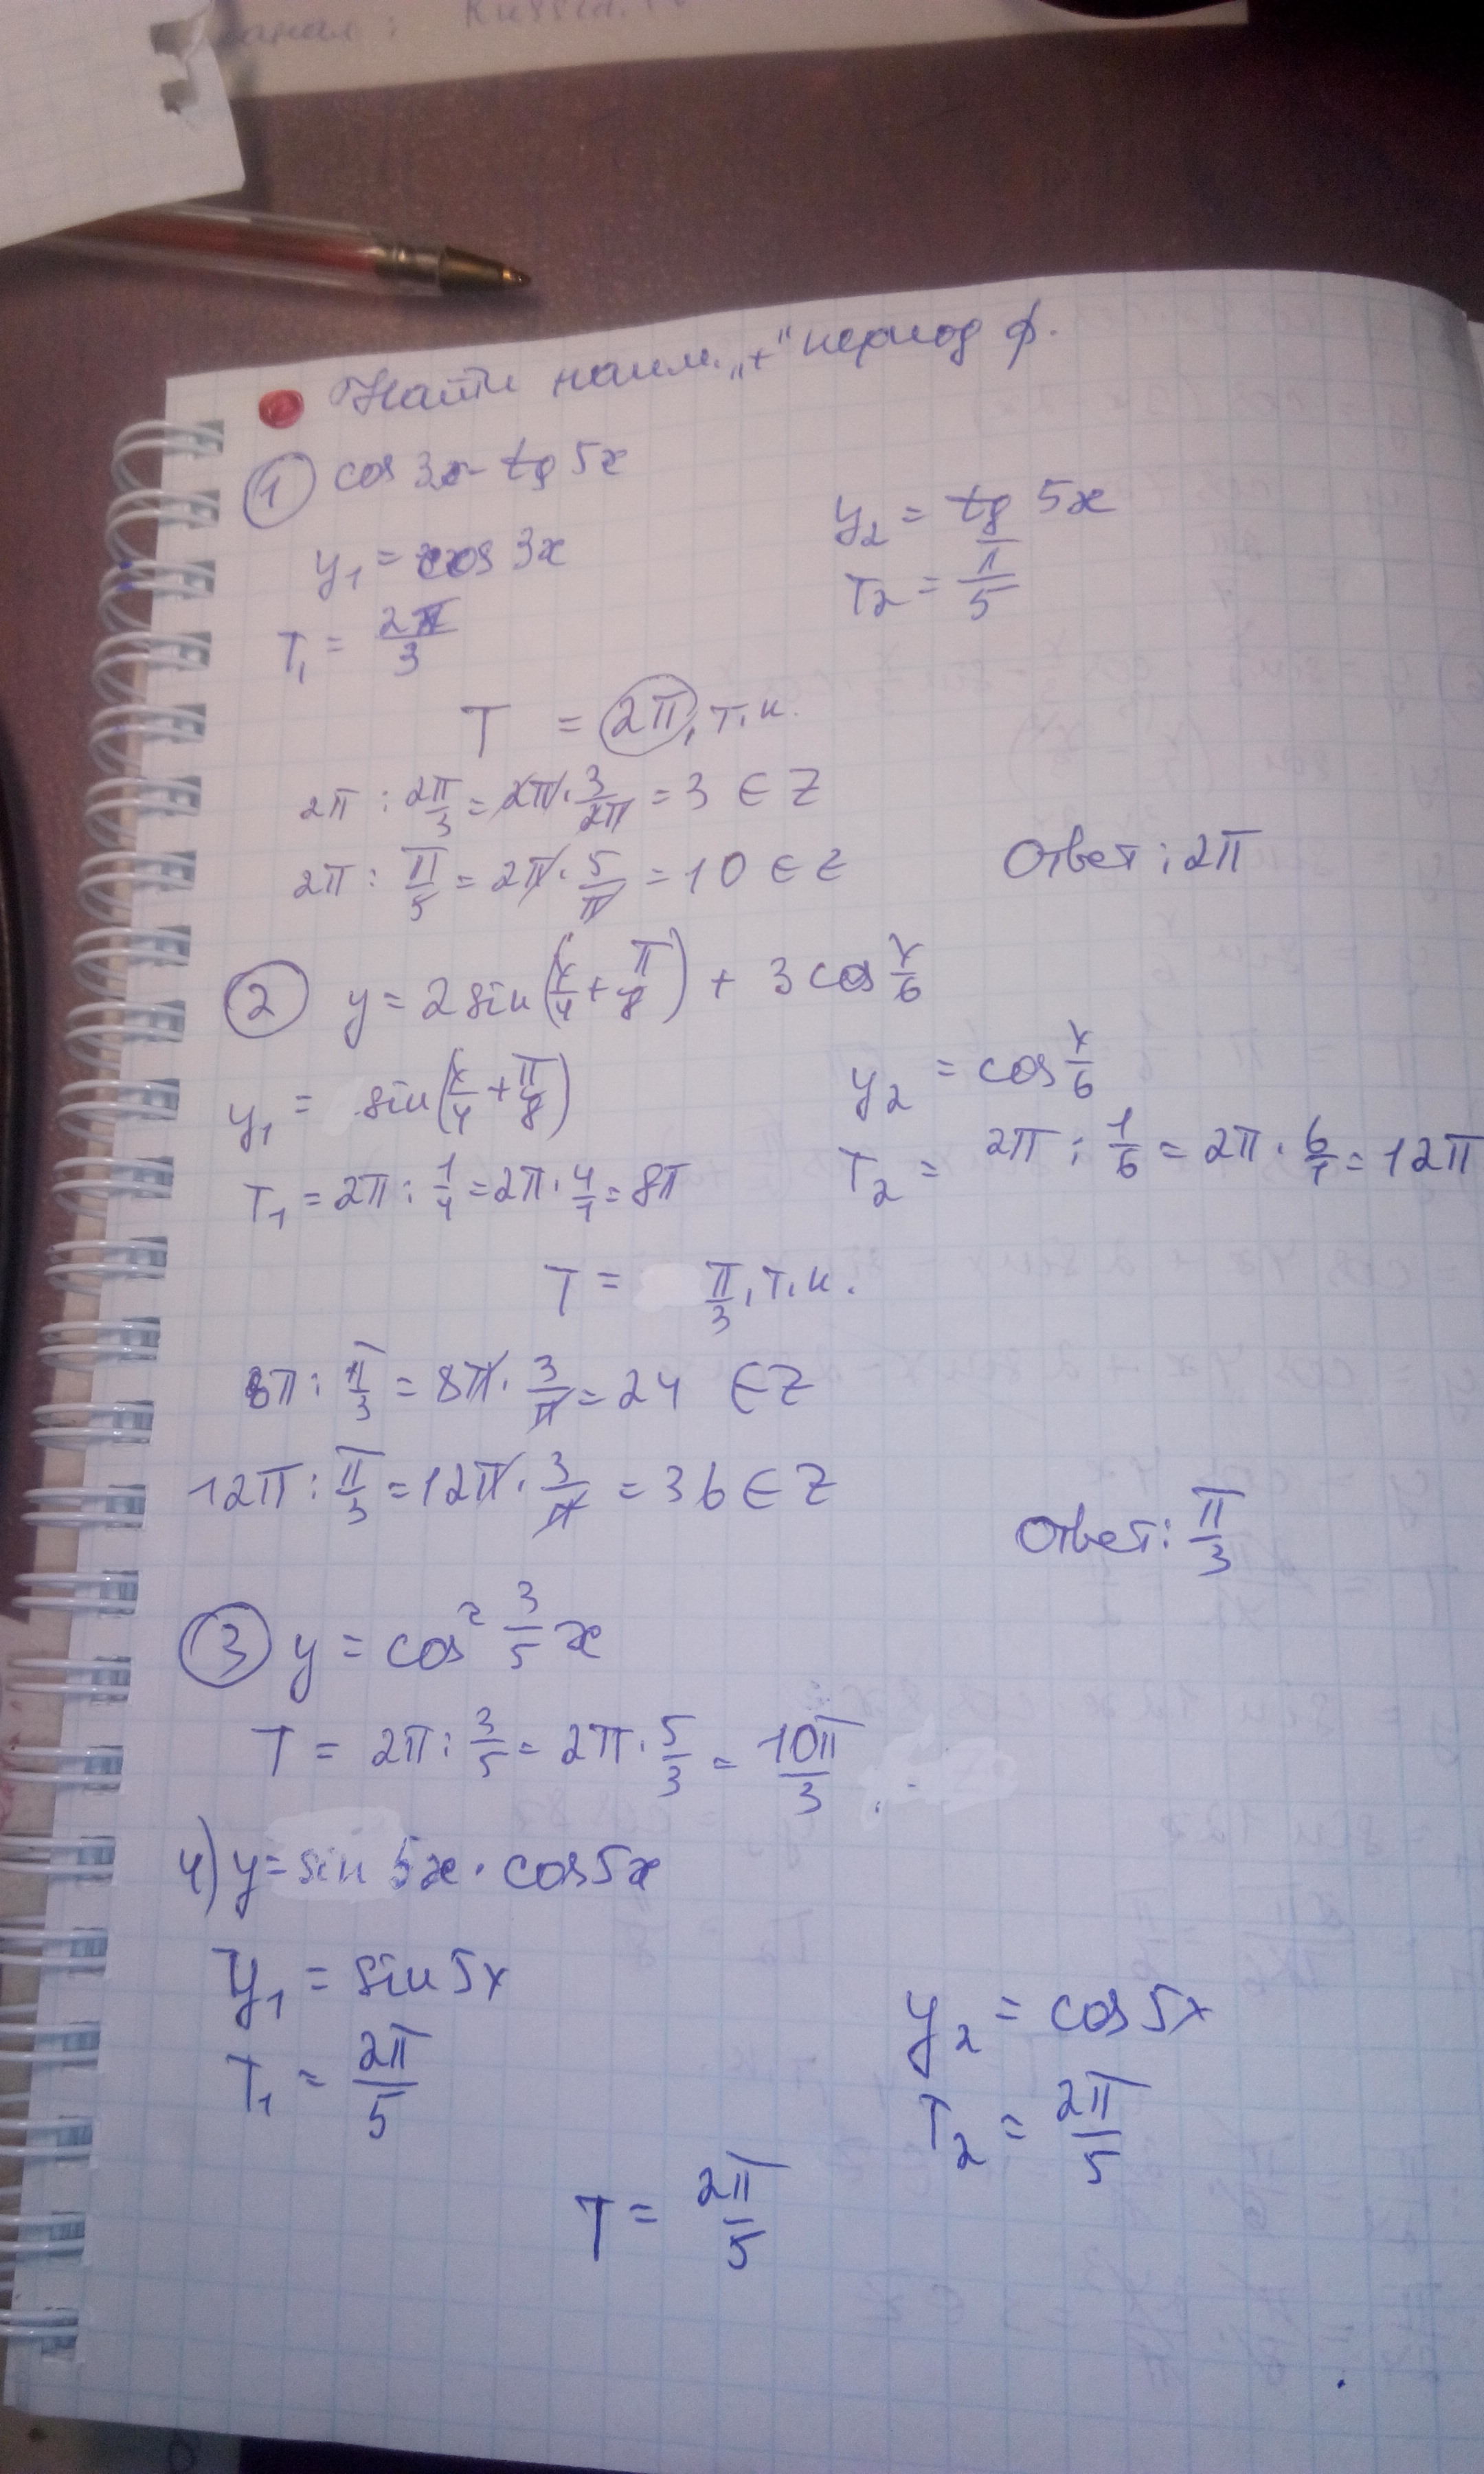 Найти наим. „+“ период ф.
① cos 3x - tg 5x
y₁ = cos 3x
y₂ = tg 5x
T₁ = 2π/3
T₂ = 1/5
T = 2π, т.к.
2π : 2π/3 = 2π · 3/2π = 3 ∈ Z
2π : π/5 = 2π · 5/π = 10 ∈ Z
Ответ: 2π
② y = 2 sin(x/4 + π/8) + 3 cos x/6
y₁ = sin(x/4 + π/8)
y₂ = cos x/6
T₁ = 2π : 1/4 = 2π · 4/1 = 8π
T₂ = 2π : 1/6 = 2π · 6/1 = 12π
T = π/3, т.к.
8π : π/3 = 8π · 3/π = 24 ∈ Z
12π : π/3 = 12π · 3/π = 36 ∈ Z
Ответ: π/3
③ y = cos² 3/5 x
T = 2π : 3/5 = 2π · 5/3 = 10π/3
4) y = sin 5x · cos 5x
y₁ = sin 5x
y₂ = cos 5x
T₁ = 2π/5
T₂ = 2π/5
T = 2π/5